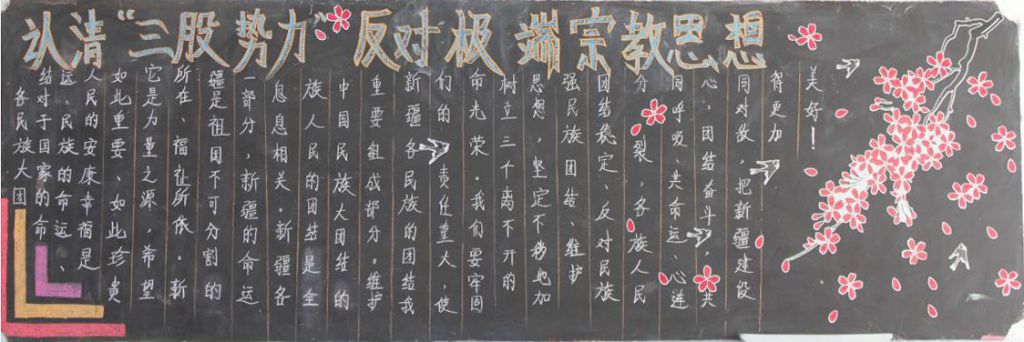 认清“三股势力”反对极端宗教思想
各民族大团
结对于国家的命
运、民族的命运、
人民的安康幸福是
如此重要、如此珍贵
它是力量之源,希望
所在、福祉所依。新
疆是祖国不可分割的
一部分,新疆的命运
息息相关。新疆各
族人民的团结是全
中国民族大团结的
重要组成部分。维护
新疆各民族的团结我
们的责任重大,使
命光荣。我们要牢固
树立三千离不开的
思想,坚定不移地加
强民族团结、维护
团结稳定、反对民族
分裂,各族人民
同呼吸、共命运、心连
心,团结奋斗,共
同对敌,把新疆建设
得更加
美好!